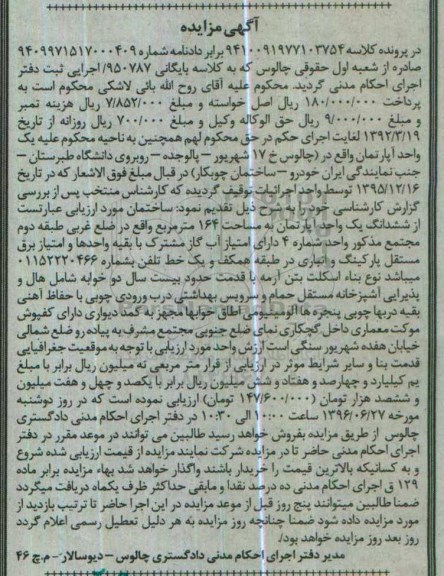 آگهی مزایده
در پرونده کلاسه ۹۴۱۰۰۹۱۹۷۷۱۰۳۷۵۴ برابر دادنامه شماره ۹۴۰۹۹۷۱۵۱۷۰۰۰۴۰۹
صادره از شعبه اول حقوقی چالوس که به کلاسه بایگانی ۹۵۰۷۸۷/ اجرایی ثبت دفتر
اجرای احکام مدنی گردید. محکوم علیه آقای روح الله بائی لاشکی محکوم است به
پرداخت ۱۸۰/۰۰۰/۰۰۰ ریال اصل خواسته و مبلغ ۷/۸۵۲/۰۰۰ ریال هزینه تمبر
و مبلغ ۹/۰۰۰/۰۰۰ ریال حق الوکاله وکیل و مبلغ ۷۰۰/۰۰۰ ریال روزانه از تاریخ
۱۳۹۲/۳/۱۹ لغایت اجرای حکم در حق محکوم لهم همچنین به ناحیه محکوم علیه یک
واحد آپارتمان واقع در (چالوس خ ۱۷ شهریور – پالوجده – روبروی دانشگاه طبرستان –
جنب نمایندگی ایران خودرو – ساختمان چوبکار) در قبال مبلغ فوق الاشعار که در تاریخ
۱۳۹۵/۱۲/۱۶ توسط واحد اجرائیات توقیف گردیده که کارشناس منتخب پس از بررسی
گزارش کارشناسی خود را به شرح ذیل تقدیم نمود: ساختمان مورد ارزیابی عبارتست
از ششدانگ یک واحد آپارتمان به مساحت ۱۶۴ مترمربع واقع در ضلع غربی طبقه دوم
مجتمع مذکور واحد شماره ۴ دارای امتیاز آب گاز مشترک با بقیه واحدها و امتیاز برق
مستقل پارکینگ و انباری در طبقه همکف و یک خط تلفن بشماره ۰۱۱۵۲۲۲۰۴۶۶
میباشد نوع بناء اسکلت بتن آرمه با قدمت حدود بیست سال دو خوابه شامل هال و
پذیرایی آشپزخانه مستقل حمام و سرویس بهداشتی درب ورودی چوبی با حفاظ آهنی
بقیه دربها چوبی پنجره ها آلومینیومی اطاق خوابها مجهز به کمد دیواری دارای کفپوش
موکت معماری داخل گچکاری نمای ضلع جنوبی مجتمع مشرف به پیاده رو ضلع شمالی
خیابان هفده شهریور سنگی است ارزش واحد مورد ارزیابی با توجه به موقعیت جغرافیایی
قدمت بنا و سایر شرایط موثر در ارزیابی از قرار متر مربعی نه میلیون ریال برابر با مبلغ
یم کیلیارد و چهارصد و هفتاد و شش میلیون ریال برابر با یکصد و چهل و هفت میلیون
و ششصد هزار تومان (۱۴۷/۶۰۰/۰۰۰ تومان) ارزیابی نموده است که در روز دوشنبه
مورخه ۱۳۹۶/۰۶/۲۷ ساعت ۱۰:۰۰ الی ۱۰:۳۰ در دفتر اجرای احکام مدنی دادگستری
چالوس از طریق مزایده بفروش خواهد رسید طالبین می توانند در موعد مقرر در دفتر
اجرای احکام مدنی حاضر تا در مزایده شرکت نمایند مزایده از قیمت ارزیابی شده شروع
و به کسانیکه بالاترین قیمت را خریدار باشند واگذار خواهد شد بهاء مزایده برابر ماده
۱۲۹ ق اجرای احکام مدنی ده درصد نقدا و مابقی حداکثر ظرف یکماه دریافت میگردد
ضمنا طالبین میتوانند پنج روز قبل از موعد مزایده در این اجرا حاضر تا ترتیب بازدید از
مورد مزایده داده شود ضمنا چنانچه روز مزایده به هر دلیل تعطیل رسمی اعلام گردد
روز بعد روز مزایده خواهد بود/.
مدیر دفتر اجرای احکام مدنی دادگستری چالوس – دیوسالار – م.چ ۴۶